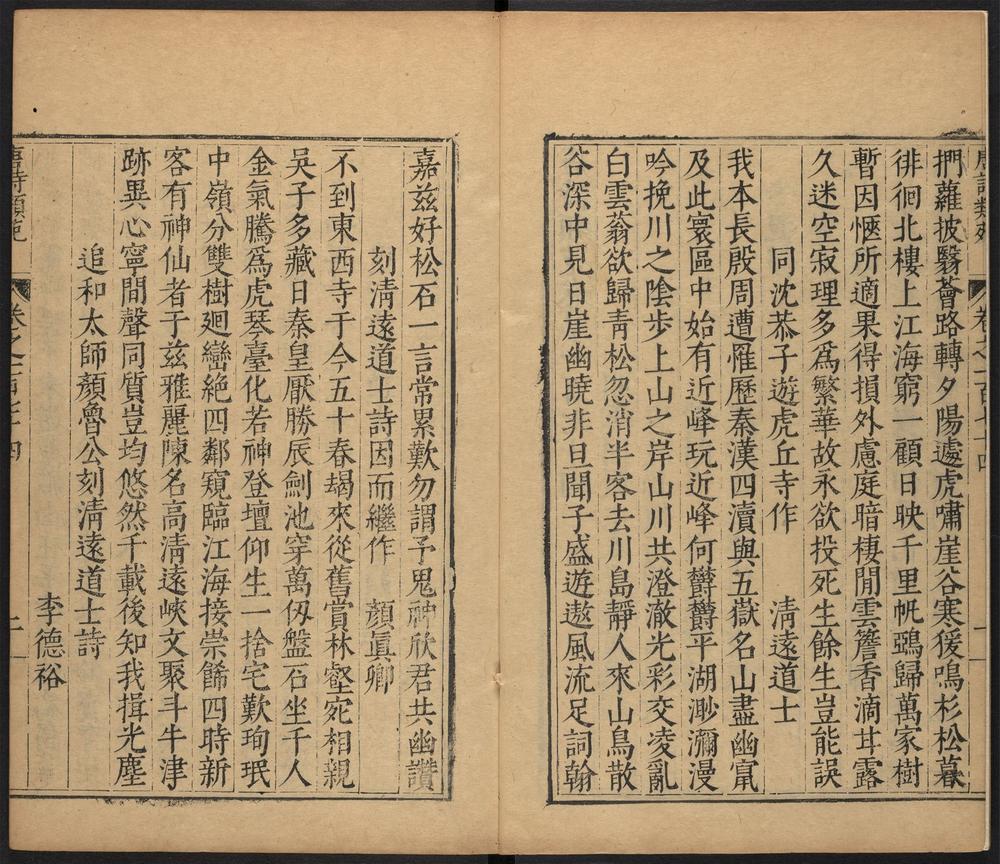 捫蘿披翳薈路轉夕陽遽虎嘯崖谷寒猨鳴杉松暮
徘徊北樓上江海窮一顧日映千里帆鵶歸萬家樹
暫因愜所適果得損外慮庭暗棲閒雲簷香滴甘露
久迷空寂理多爲繁華故永欲投死生餘生豈能誤
同沈恭子遊虎丘寺作 清遠道士
我本長殷周遭罹歷秦漢四瀆與五嶽名山盡幽竄
及此寰區中始有近峰玩近峰何鬱鬱平湖渺瀰漫
吟挽川之陰步上山之岸山川共澄澈光彩交凌亂
白雲蓊欲歸青松忽消半客去川島靜人來山鳥散
谷深中見日崖幽曉非旦聞子盛遊遨風流足詞翰
嘉茲好松石一言常累歎勿謂予鬼神欣君共幽讚
刻清遠道士詩因而繼作 顏眞卿
不到東西寺于今五十春朅來從舊賞林壑宛相親
吳子多藏日秦皇厭勝辰劍池穿萬仭盤石坐千人
金氣騰爲虎琴臺化若神登壇仰生一捨宅歎珣珉
中嶺分雙樹廻巒絕四鄰窺臨江海接崇餙四時新
客有神仙者于茲雅麗陳名高清遠峽文聚斗牛津
跡異心寧間聲同質豈均悠然千載後知我揖光塵
追和太師顏魯公刻清遠道士詩
李德裕
二